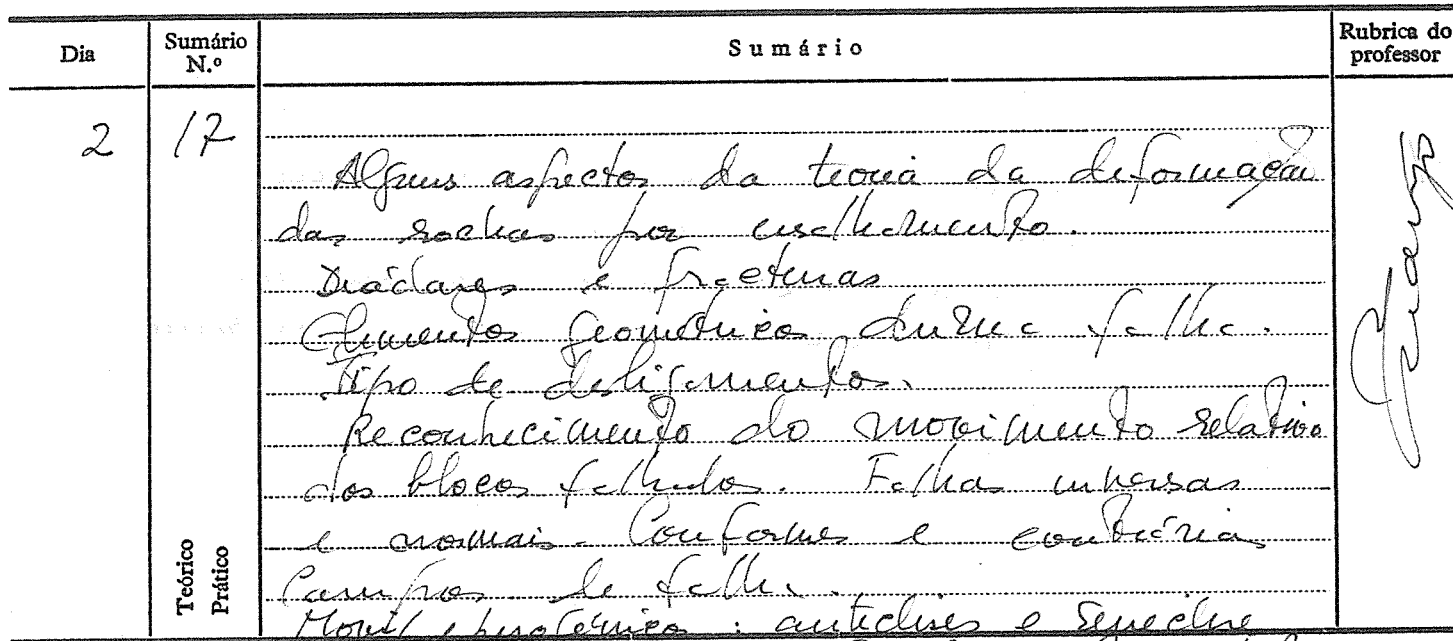 Dia
Sumário N.º
Sumário
Rubrica do professor
2
17
Alguns aspectos da teoria da deformação
das rochas por cisalhamento.
Diáclases e fracturas
Elementos geométricos duma falha.
Tipo de desligamentos.
Reconhecimento do movimento relativo
dos blocos falhados. Falhas inversas
e normais. Conformes e contrárias
Campos de falha.
: anteclises e
Teórico
Prático